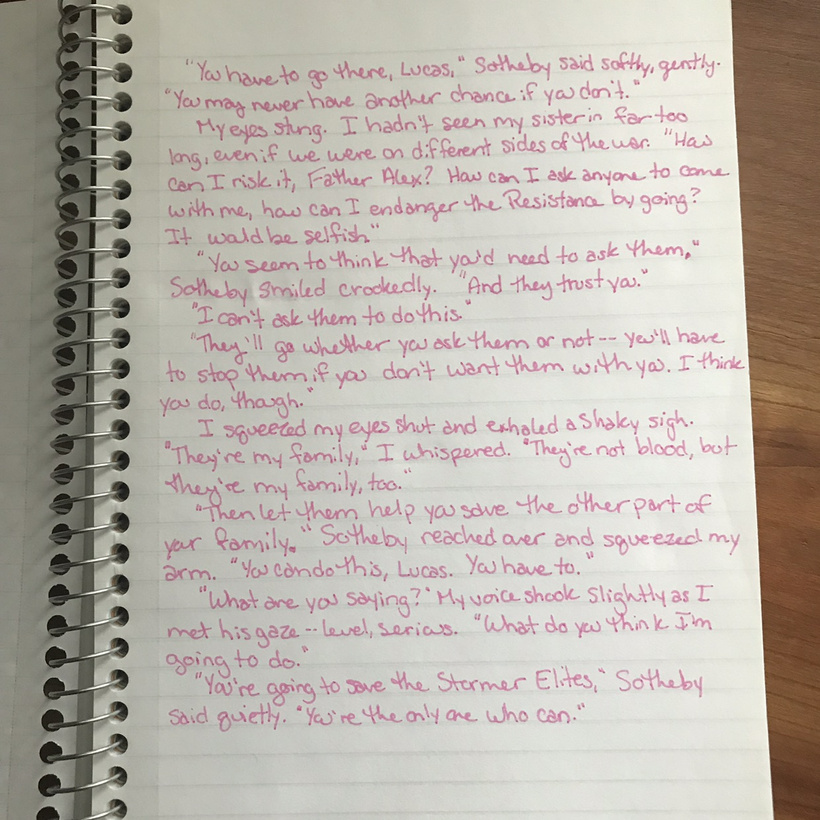 "You have to go there, Lucas," Sotheby said softly, gently.
"You may never have another chance if you don't."
My eyes stung. I hadn't seen my sister in far too
long, even if we were on different sides of the war. "How
can I risk it, Father Alex? How can I ask anyone to come
with me, how can I endanger the Resistance by going?
It would be selfish."
"You seem to think that you'd need to ask them,"
Sotheby smiled crookedly. "And they trust you."
"I can't ask them to do this."
"They'll go whether you ask them or not -- you'll have
to stop them if you don't want them with you. I think
you do, though."
I squeezed my eyes shut and exhaled a shaky sigh.
"They're my family," I whispered. "They're not blood, but
they're my family, too."
"Then let them help you save the other part of
your family." Sotheby reached over and squeezed my
arm. "You can do this, Lucas. You have to."
"What are you saying?" My voice shook slightly as I
met his gaze -- level, serious. "What do you think I'm
going to do."
"You're going to save the Stormer Elites," Sotheby
said quietly. "You're the only one who can."